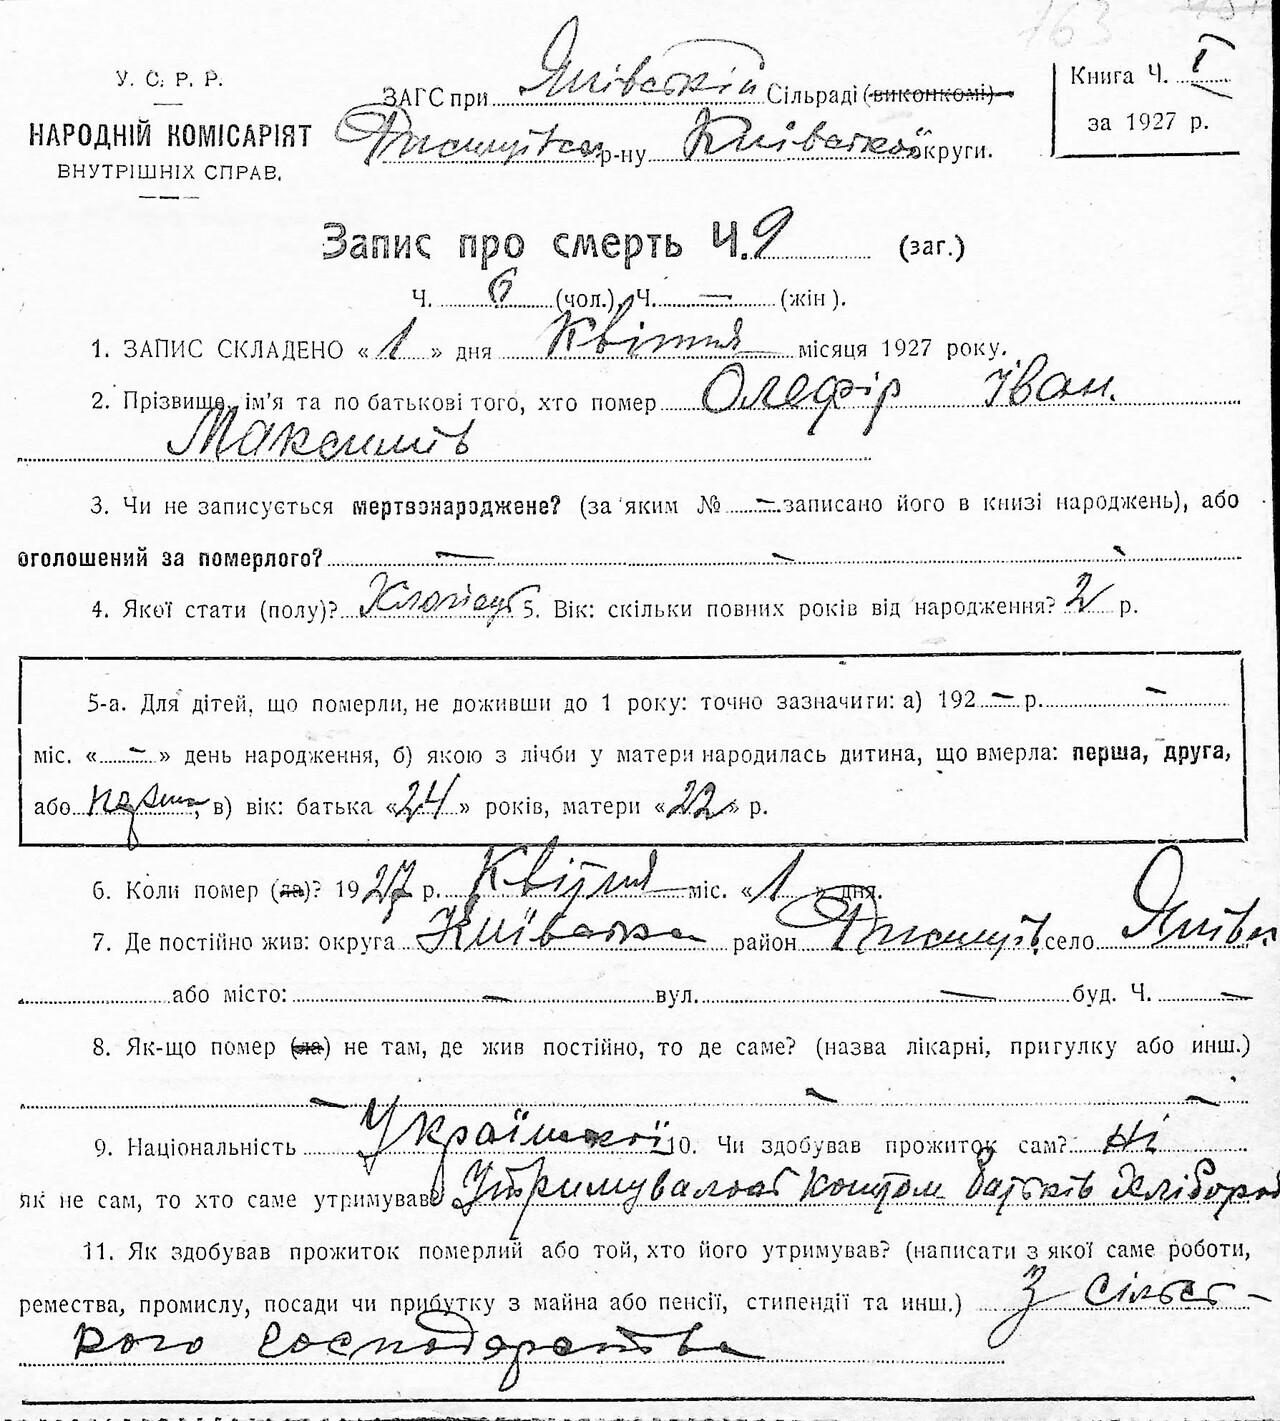 163
У. С. Р. Р.
НАРОДНІЙ КОМІСАРІЯТ
ВНУТРІШНІХ СПРАВ.
ЗАГС при Янівській Сільраді (виконкомі)
р-ну Київської округи.
Книга Ч. I
за 1927 р.
Запис про смерть Ч. 9 (заг.)
Ч. 6 (чол.) Ч. — (жін).
1. ЗАПИС СКЛАДЕНО «1» дня Квітня місяця 1927 року.
2. Прізвище, ім'я та по батькові того, хто помер Олефір Іван.
Максимів
3. Чи не записується мертвонароджене? (за яким № — записано його в книзі народжень), або
оголошений за померлого? — — —
4. Якої стати (полу)? 5. Вік: скільки повних років від народження? 2 р.
5-а. Для дітей, що померли, не доживши до 1 року: точно зазначити: а) 192 — р. —
міс. «—» день народження, б) якою з лічби у матери народилась дитина, що вмерла: перша, друга,
або перша, в) вік: батька «24» років, матери «22» р.
6. Коли помер (ла)? 1927 р. Квітня міс. «1» дня.
7. Де постійно жив: округа Київська район село Янівка
або місто: — вул. — буд. Ч. —
8. Як-що помер (ла) не там, де жив постійно, то де саме? (назва лікарні, пригулку або инш.)
— — —
9. Національність Української 10. Чи здобував прожиток сам? Ні
як не сам, то хто саме утримував Утримувався коштом батьків
11. Як здобував прожиток померлий або той, хто його утримував? (написати з якої саме роботи,
ремества, промислу, посади чи прибутку з майна або пенсії, стипендії та инш.) З сільсь-
кого господарства